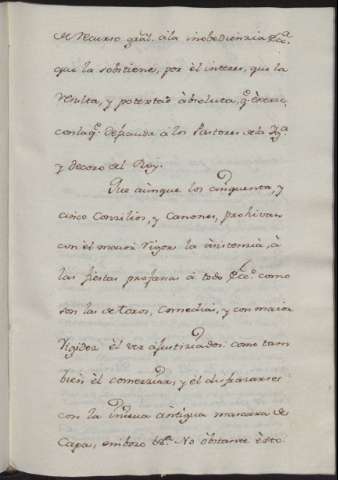 el recurso gral. ála inobediencia Ecca.
que la sobstiene, por él interes, que la
resulta, y potextad ábsoluta, q.e éxerce,
con la q.e defrauda á los Pastores de la Yg.a
y decoro del Rey.
Que aúnque los cinquenta, y
cinco Consilios, y Canones, prohivan
con él maior vigor la ásistencia, á
las fiestas profanas á todo Ecco. como
son las de toros, comedias, y con maior
rigidez él ver ájusticiados: como tam
bien él comerciar, y él disfrazarse
con la antigua manera de
Capa, emboro &a. No óbstante ésto